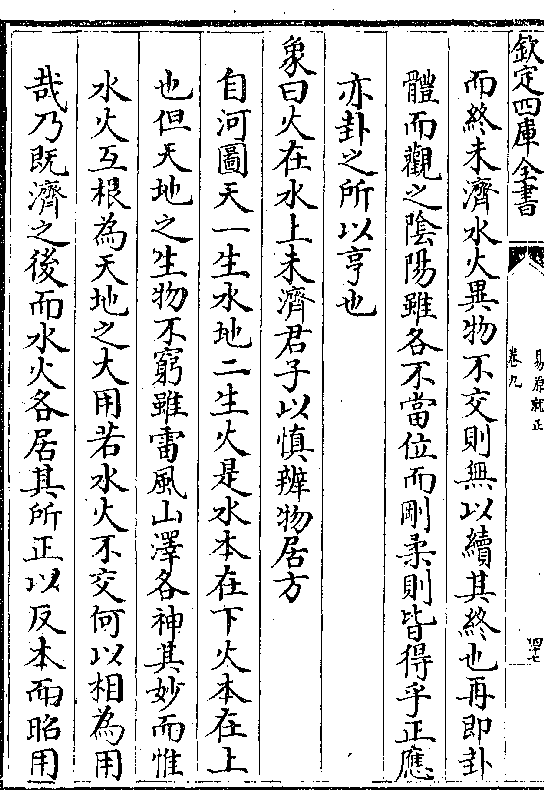 欽定四庫全書
易原就正
卷九
四十七
而終未濟水火異物不交則無以續其終也再即卦
體而觀之陰陽雖各不當位而剛柔則皆得乎正應
亦卦之所以亨也
象曰火在水上未濟君子以慎辨物居方
自河圖天一生水地二生火是水本在下火本在上
也但天地之生物不窮雖雷風山澤各神其妙而惟
水火互根為天地之大用若水火不交何以相為用
哉乃既濟之後而水火各居其所正以反本而昭用